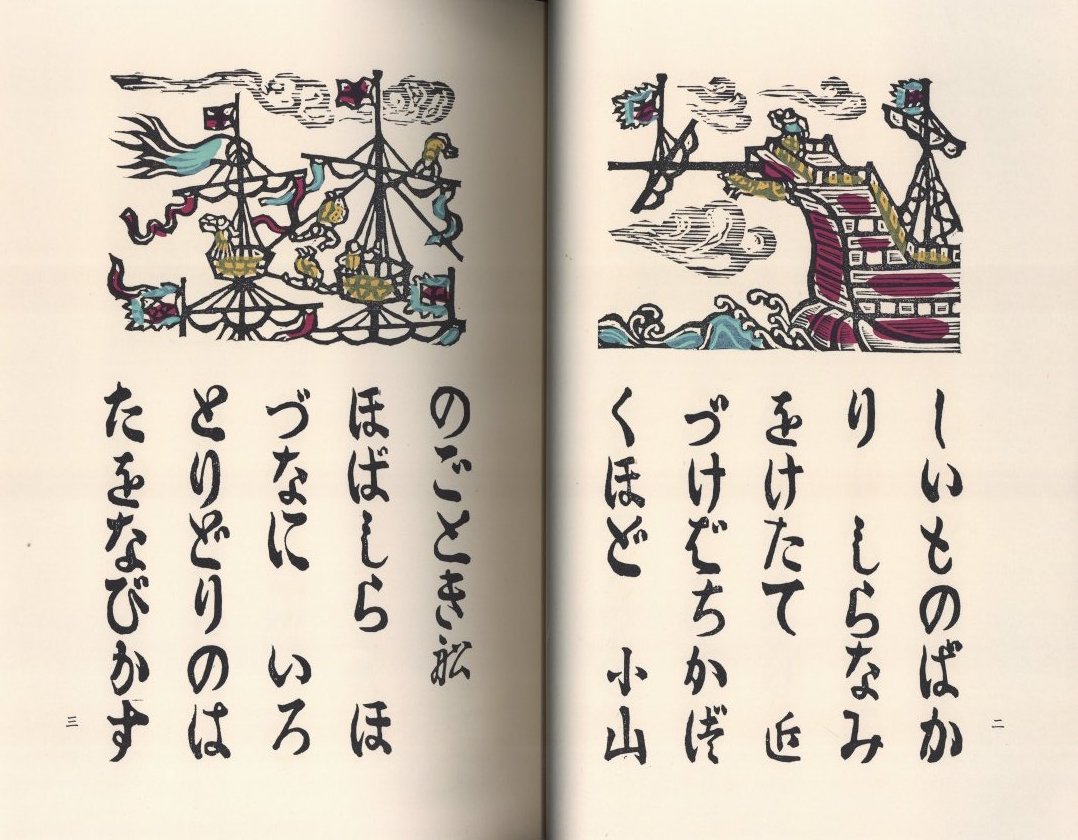 しいものばか
り しらなみ
をけたて 近
づけばちかづ
くほど 小山
二
のごとき舩
ほばしら ほ
づなに いろ
とりどりのは
たをなびかす
三